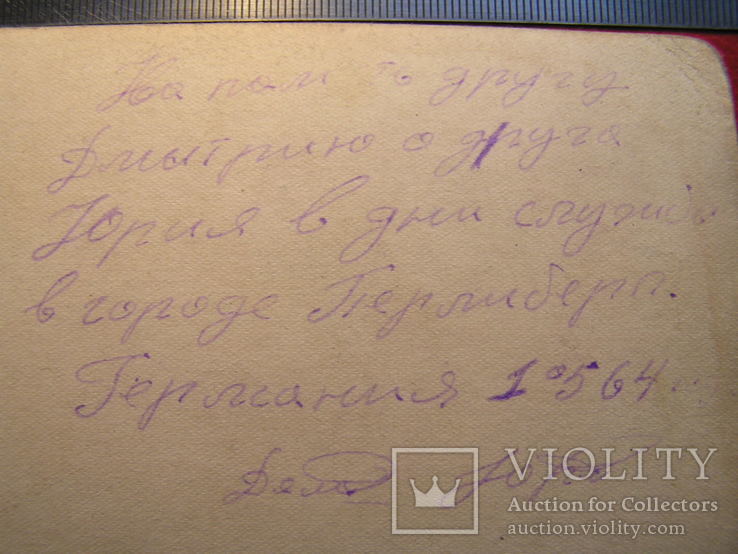 На пам ть другу
Дмытрию о друга
Юрия в дни службы
в городе
Германия 1°564
VIOLITY
Auction for Collectors
auction.violity.com